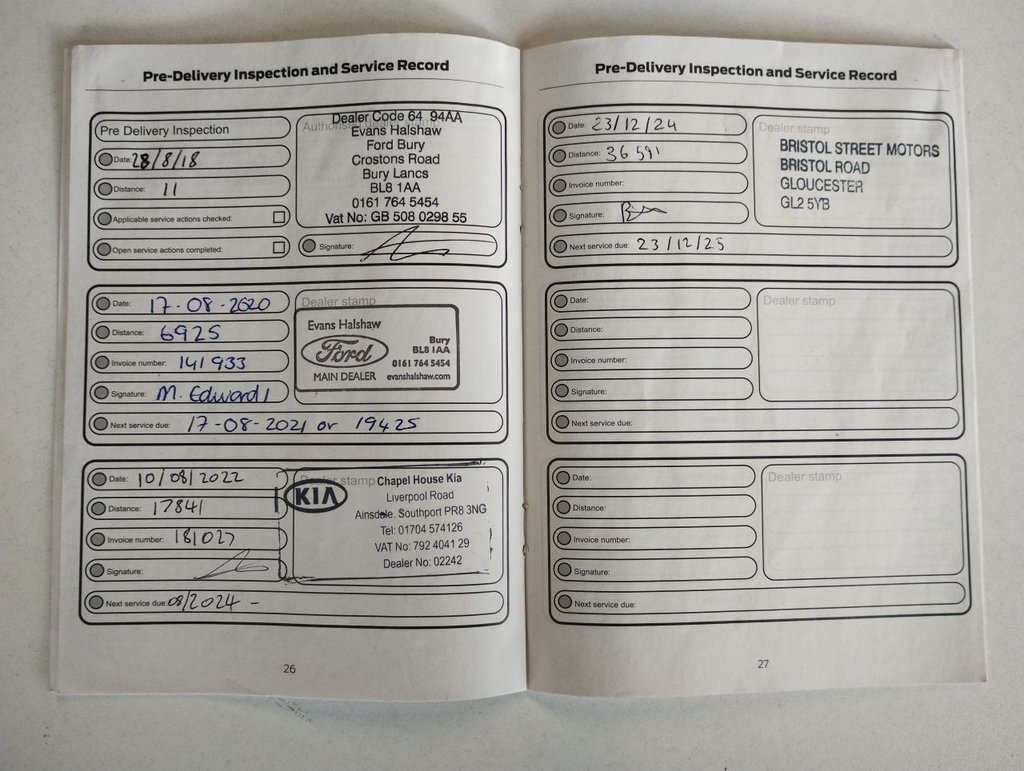 Pre-Delivery Inspection and Service Record
Pre Delivery Inspection
Date: 28/8/18
Distance: 11
Applicable service actions checked:
Open service actions completed:
Dealer Code 64 94AA
Evans Halshaw
Ford Bury
Crostons Road
Bury Lancs
BL8 1AA
0161 764 5454
Vat No: GB 508 0298 55
Signature:
Date: 17-08-2020
Distance: 6925
Invoice number: 141933
Signature: M. Edward
Next service due: 17-08-2021 or 19425
Dealer stamp
Evans Halshaw
Ford
MAIN DEALER
Bury
BL8 1AA
0161 764 5454
evanshalshaw.com
Date: 10/08/2022
Distance: 17841
Invoice number: 181027
Signature:
Next service due: 08/2024 -
Dealer stamp
KIA
Chapel House Kia
Liverpool Road
Ainsdale. Southport PR8 3NG
Tel: 01704 574126
VAT No: 792 4041 29
Dealer No: 02242
26
Pre-Delivery Inspection and Service Record
Date: 23/12/24
Distance: 36591
Invoice number:
Signature:
Next service due: 23/12/25
Dealer stamp
BRISTOL STREET MOTORS
BRISTOL ROAD
GLOUCESTER
GL2 5YB
Date:
Distance:
Invoice number:
Signature:
Next service due:
Dealer stamp
Date:
Distance:
Invoice number:
Signature:
Next service due:
Dealer stamp
27